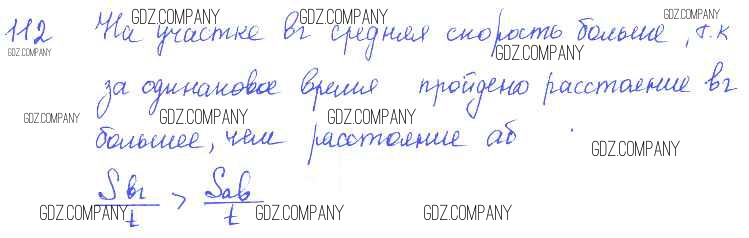 112 На участке вг средняя скорость больше, т.к
за одинаковое время пройдено расстояние вг
большее, чем расстояние аб.
Sвг/t > Sаб/t
GDZ.COMPANY
GDZ.COMPANY
GDZ.COMPANY
GDZ.COMPANY
GDZ.COMPANY
GDZ.COMPANY
GDZ.COMPANY
GDZ.COMPANY
GDZ.COMPANY
GDZ.COMPANY
GDZ.COMPANY
GDZ.COMPANY
GDZ.COMPANY